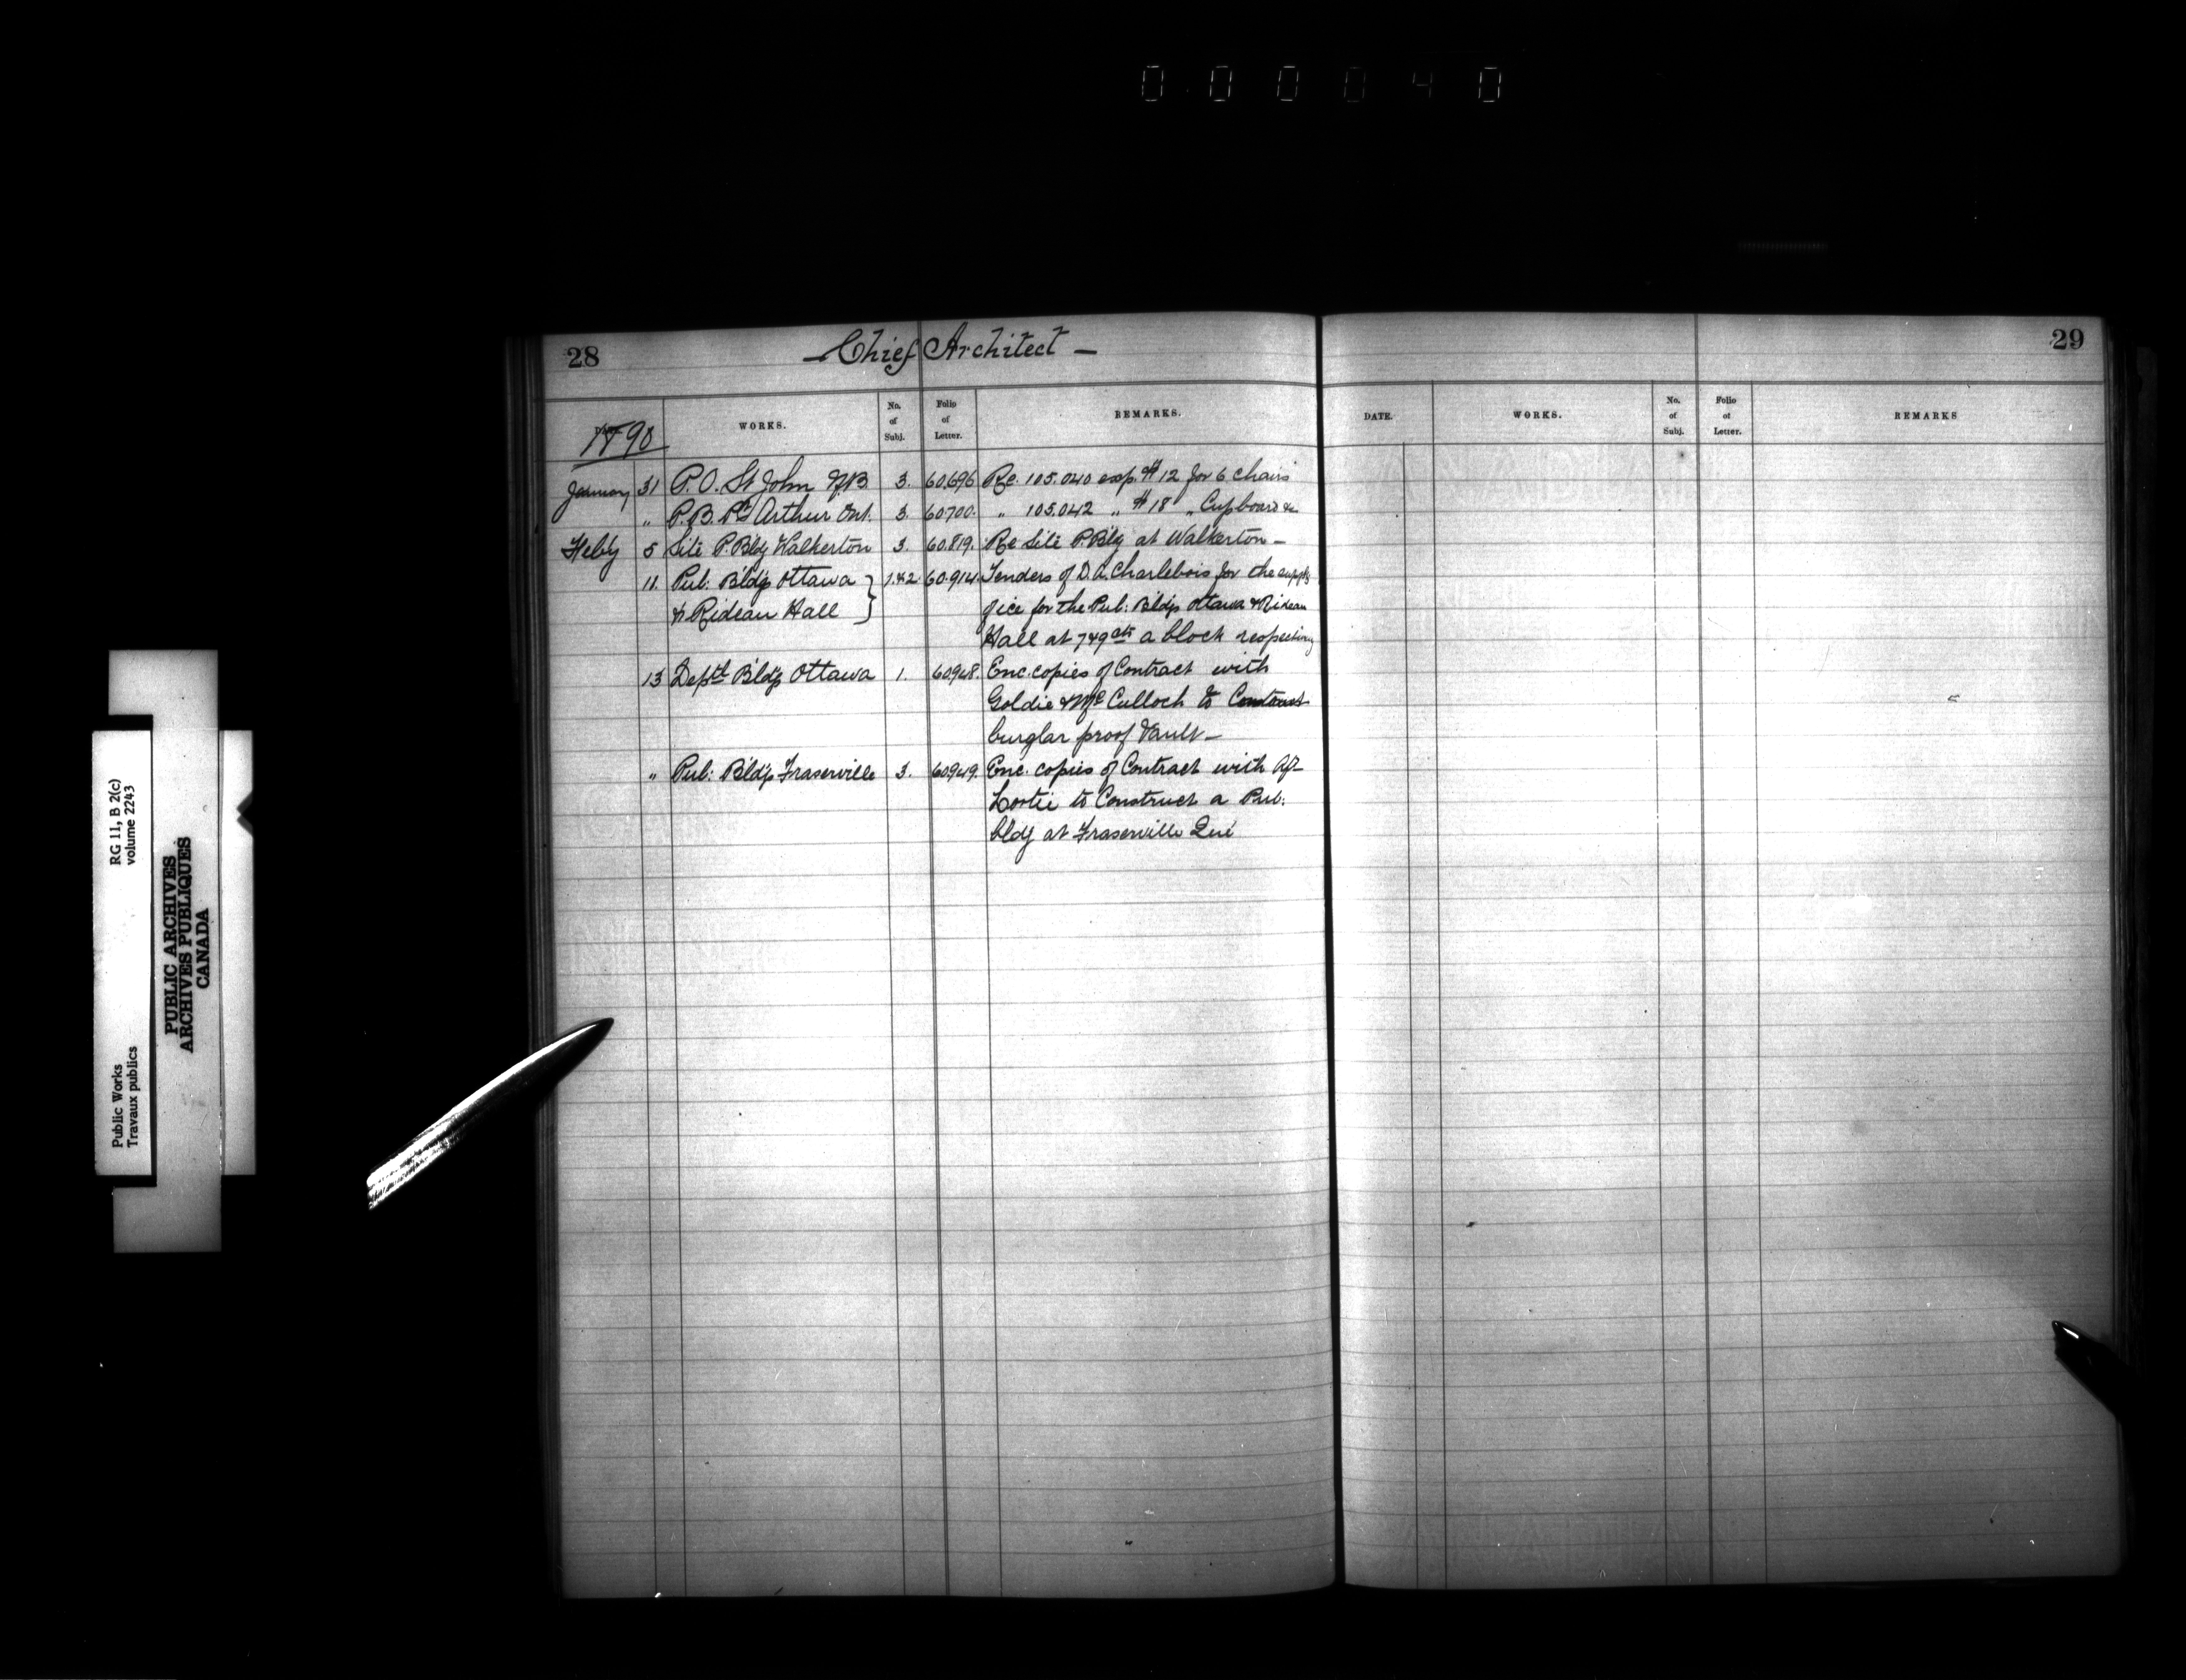 0 0 0 0 4 0
28
— Chief Architect —
DATE.
1890
WORKS.
No. of Subj.
Folio of Letter.
REMARKS.
January 31 P.O. St John N.B. 3. 60.696 Re. 105.040 exp. $12 for 6 chairs
" P.B. Pt Arthur Ont. 3. 60700. " 105.042 " $18 " Cupboard &c
Feby 5 Site P. Bldg Walkerton 3. 60.819. Re Site P. Bldg at Walkerton —
11. Pub: Bldgs Ottawa } 1.&2. 60.914. Tenders of D.A. Charlebois for the supply
& Rideau Hall of ice for the Pub: Bldgs Ottawa & Rideau
Hall at 7 & 9 cts a block respecting
13 Deptl Bldgs Ottawa 1. 60948. Enc. copies of Contract with
Goldie & McCulloch to Construct
burglar proof Vault —
" Pub: Bldgs Fraserville 3. 60949. Enc. copies of Contract with
Lortie to Construct a Pub.
bldg at Fraserville Que
29
DATE.
WORKS.
No. of Subj.
Folio of Letter.
REMARKS
RG 11, B 2(c)
volume 2243
Public Works
Travaux publics
PUBLIC ARCHIVES
ARCHIVES PUBLIQUES
CANADA